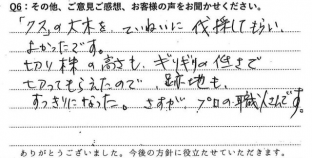 Q6：その他、ご意見ご感想、お客様の声をお聞かせください。
「クス」の大木を、ていねいに伐採してもらい、
よかったです。
切り株の高さも、ギリギリの低さで
切ってもらえたので、跡地も、
すっきりになった。さすが、プロの職人さんです。
ありがとうございました。今後の方針に役立たせていただきます。